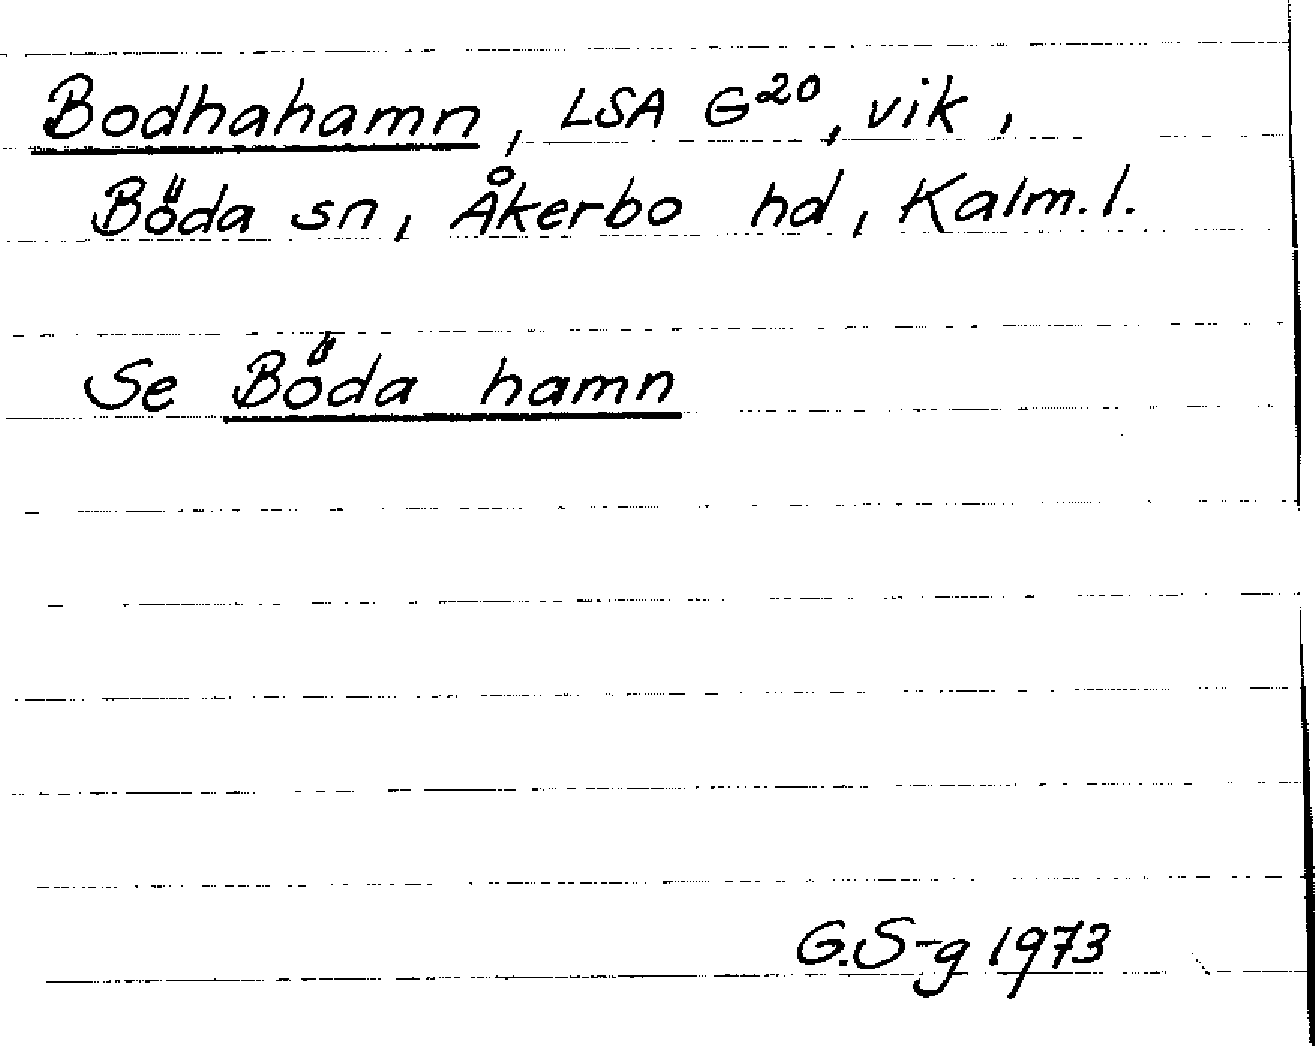 Bodhahamn, LSA G²⁰, vik,
Böda sn, Åkerbo hd, Kalm. l.
Se Böda hamn
G.S-g 1973